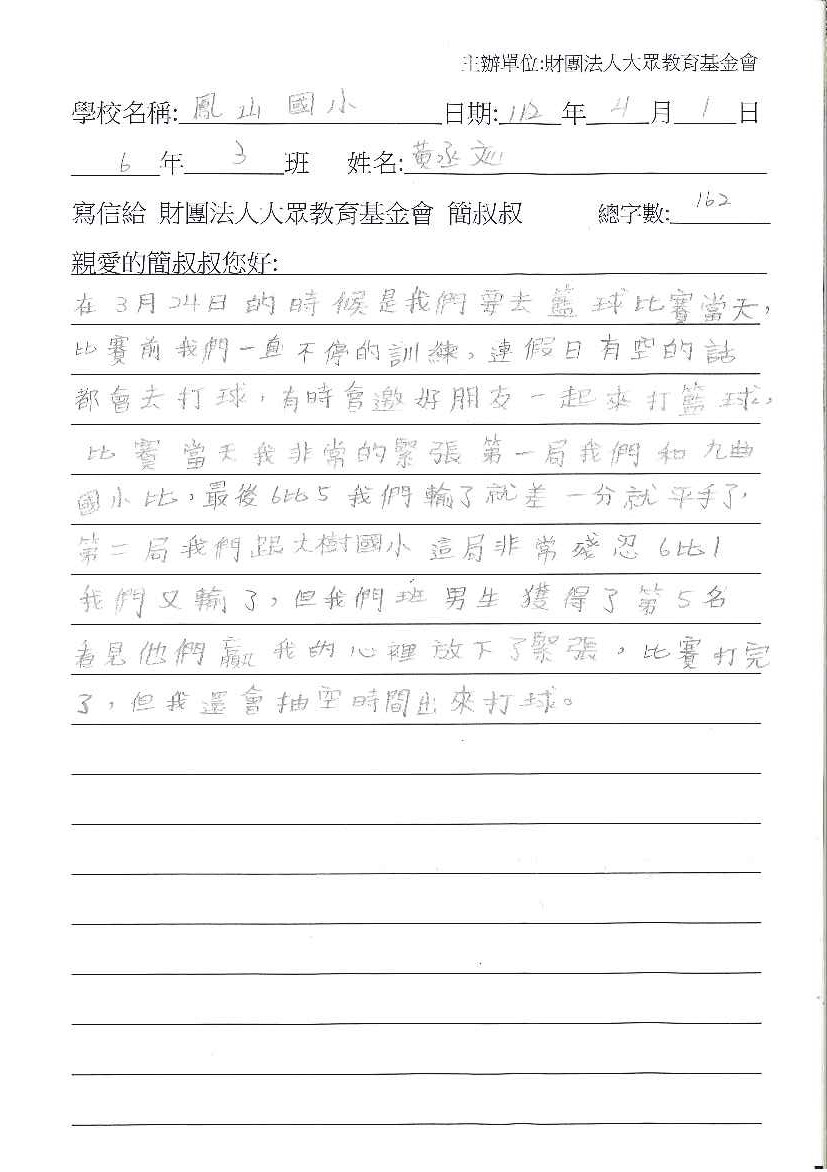 主辦單位:財團法人大眾教育基金會
學校名稱: 鳳山國小 日期: 112 年 4 月 1 日
6 年 3 班 姓名: 黃丞
寫信給 財團法人大眾教育基金會 簡叔叔 總字數: 162
親愛的簡叔叔您好:
在3月24日的時候是我們要去籃球比賽當天,
比賽前我們一直不停的訓練,連假日有空的話
都會去打球,有時會邀好朋友一起來打籃球,
比賽當天我非常的緊張第一局我們和九曲
國小比,最後6比5我們輸了就差一分就平手了,
第二局我們跟大樹國小這局非常殘忍6比1
我們又輸了,但我們班男生獲得了第5名
看見他們贏我的心裡放下了緊張,比賽打完
了,但我還會抽空時間出來打球。